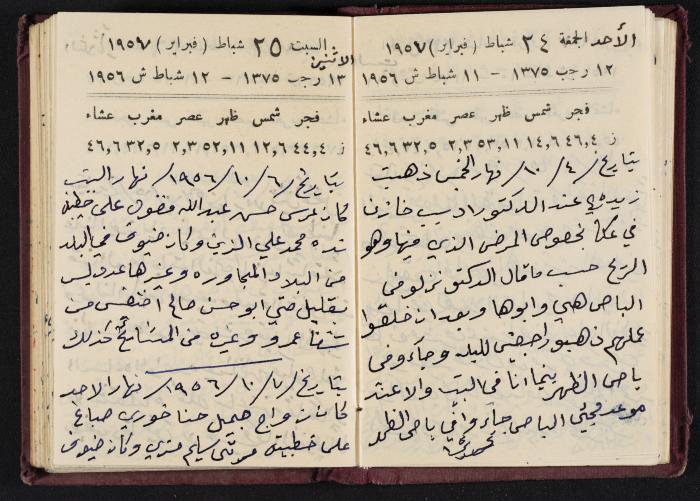 الأحد الجمعة ٢٤ شباط (فبراير) ١٩٥٧
١٢ رجب ١٣٧٥ - ١١ شباط ش ١٩٥٦
فجر شمس ظهر عصر مغرب عشاء
ز ٤٦,٤ ١٤,٦ ٥٣,١١ ٢,٣ ٣٢,٥ ٤٦,٦
بتاريخ /٤/١٠/ نهار الخميس ذهبت
عند الدكتور اديب خازن
في عكا بخصوص المرض الذي فيها وهو
الريح حسب ما قال الدكتور نزلو في
الباص هي وابوها وبعد ان خلقوا
عملهم ذهبو راجعين للبلد وجاءو في
باص الظهر بينما انا في البيت والاعتد
موعد مجيئ الباص جاءو في باص الظهر
السبت ٢٥ شباط (فبراير) ١٩٥٧
الاثنين
١٣ رجب ١٣٧٥ - ١٢ شباط ش ١٩٥٦
فجر شمس ظهر عصر مغرب عشاء
ز ٤٤,٤ ١٢,٦ ٥٢,١١ ٢,٣ ٣٢,٥ ٤٦,٦
بتاريخ /٦/١٠/١٩٥٦/ نهار السبت
كان عرس حسن عبدالله على خطيبته
محمد علي الزين وكان ضيوف في البلد
من البلاد المجاوره وغيرها عدد ليس
بقليل حتي ابو حسن صالح خنيفس من
شفاعمرو وغيره من المشايخ كذلك
بتاريخ /٧/١٠/١٩٥٦/ نهار الاحد
كان زواج جميل حنا خوري صباغ
على خطيبته سليم وكان ضيوف